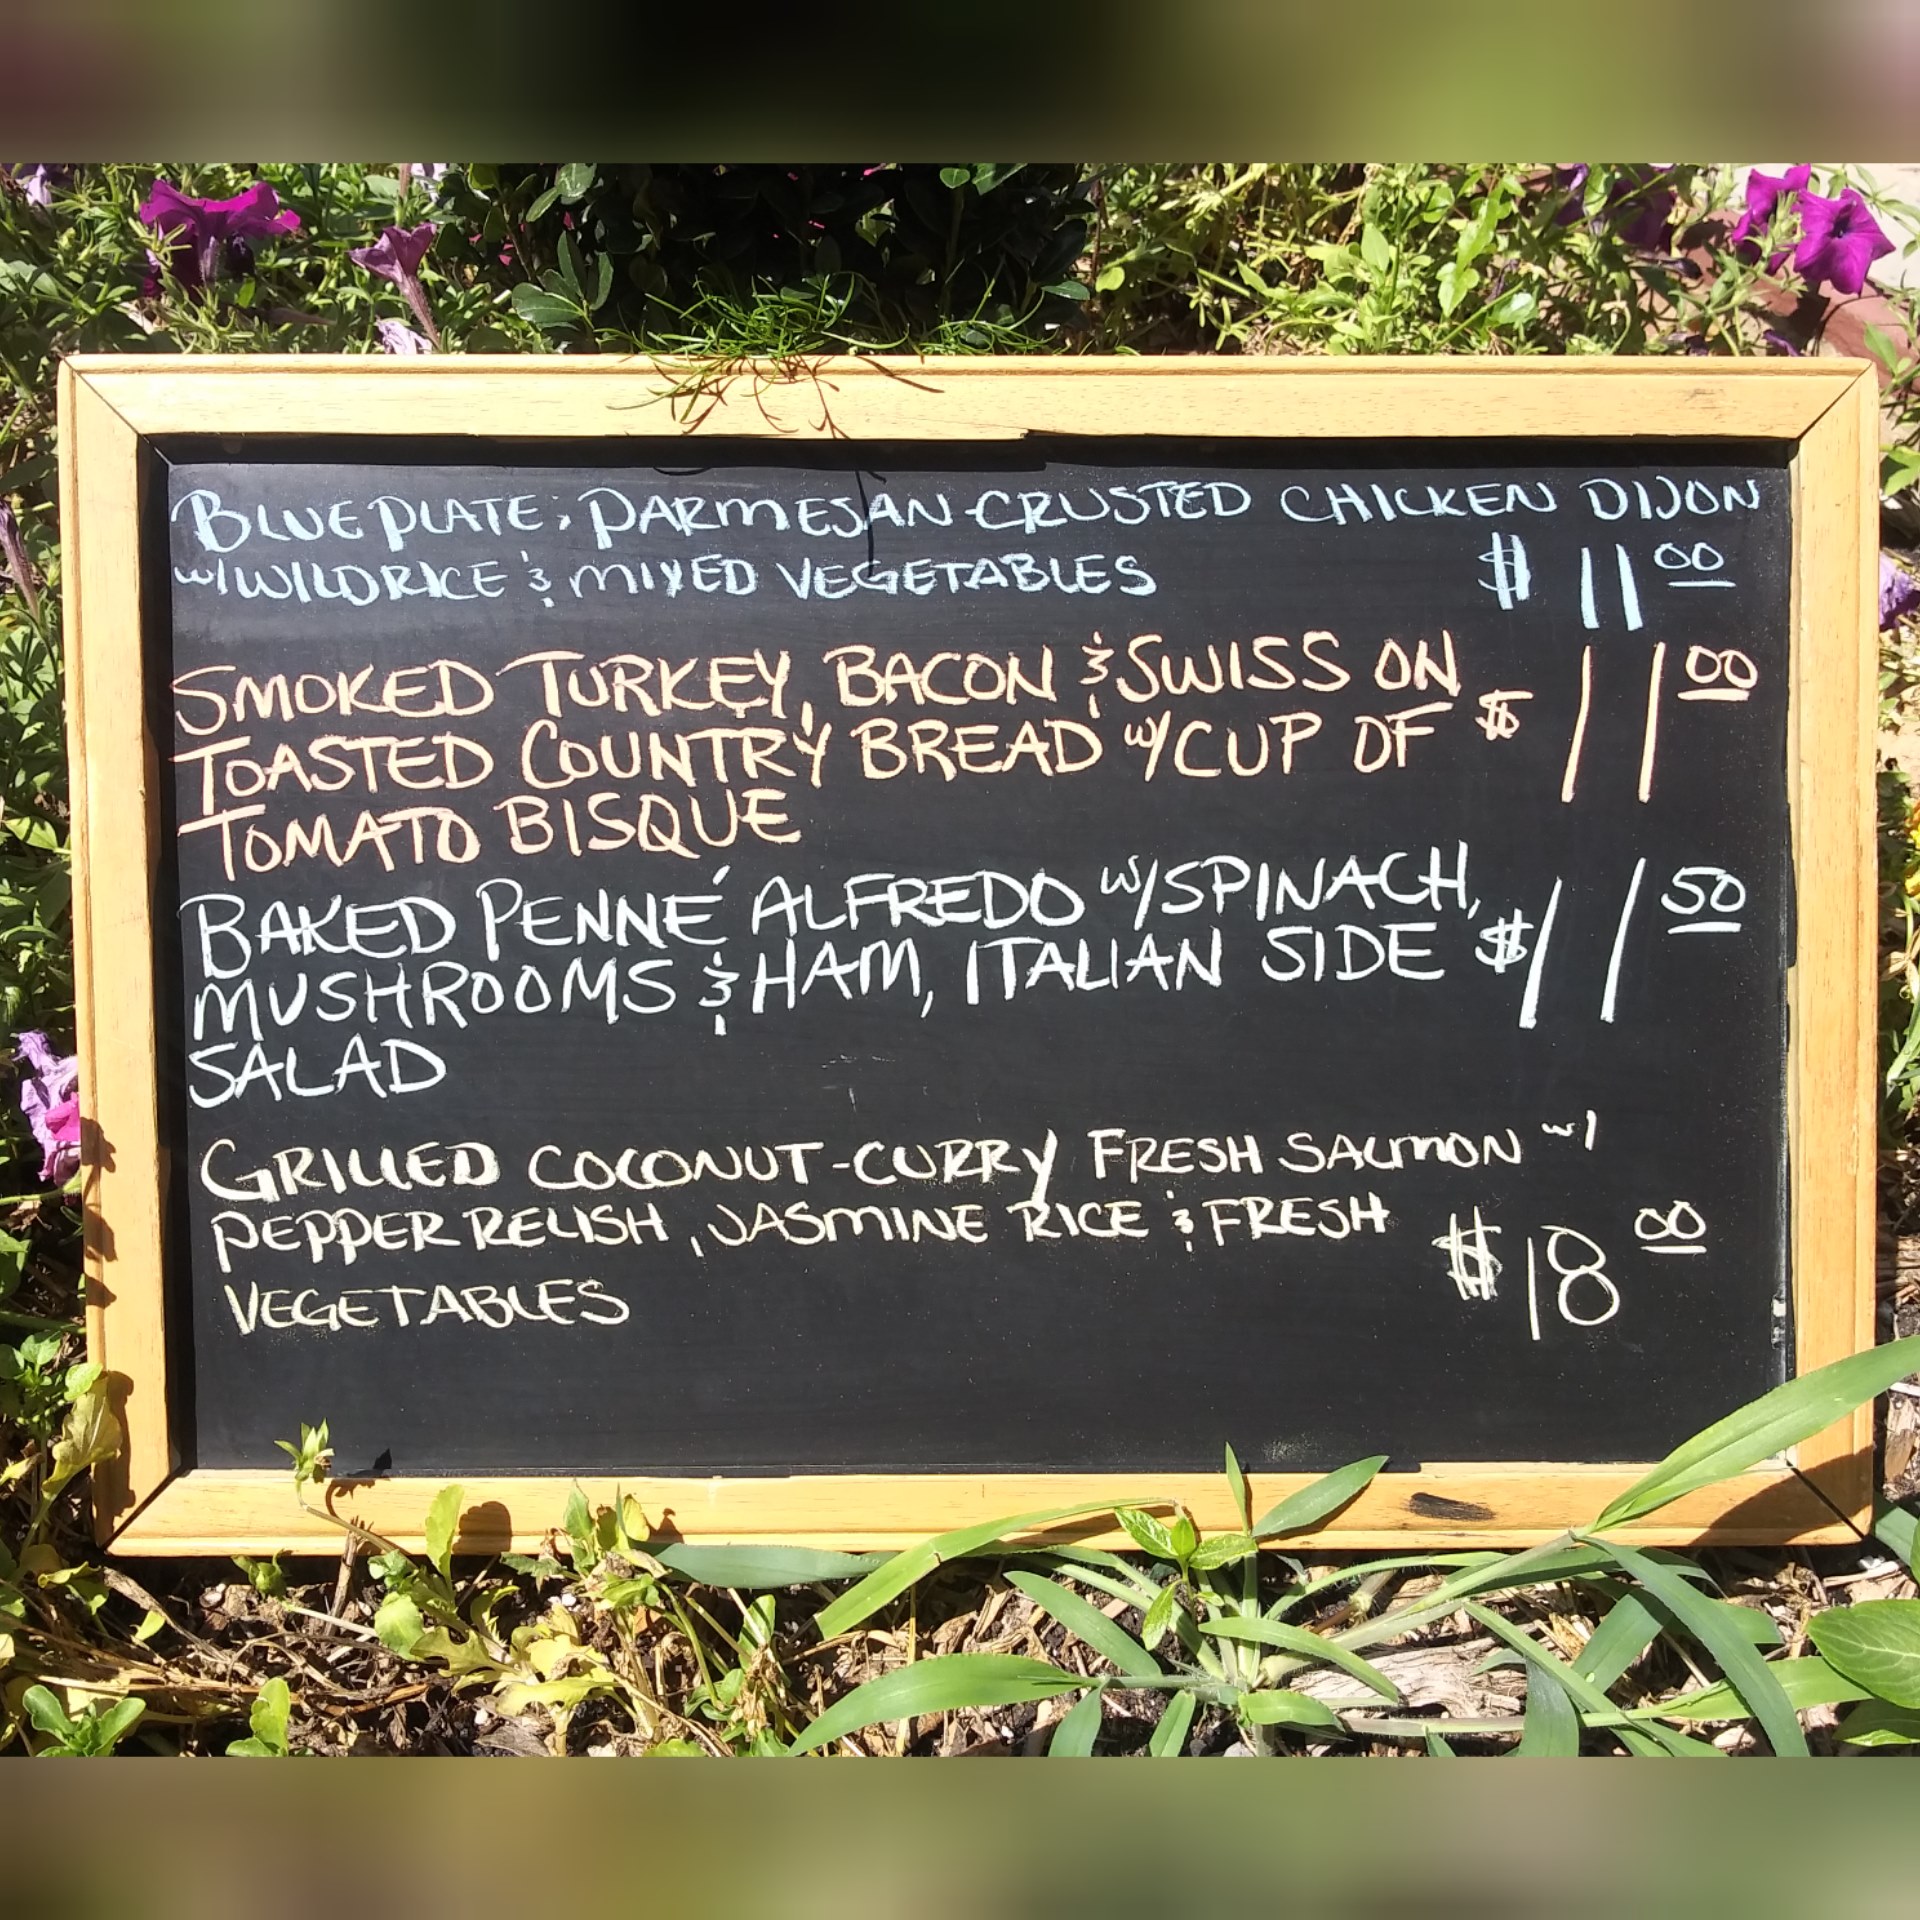 BLUE PLATE: PARMESAN-CRUSTED CHICKEN DIJON
w/ WILD RICE & MIXED VEGETABLES $11.00
SMOKED TURKEY, BACON & SWISS ON
TOASTED COUNTRY BREAD w/ CUP OF $11.00
TOMATO BISQUE
BAKED PENNÉ ALFREDO w/ SPINACH,
MUSHROOMS & HAM, ITALIAN SIDE $11.50
SALAD
GRILLED COCONUT-CURRY FRESH SALMON w/
PEPPER RELISH, JASMINE RICE & FRESH $18.00
VEGETABLES